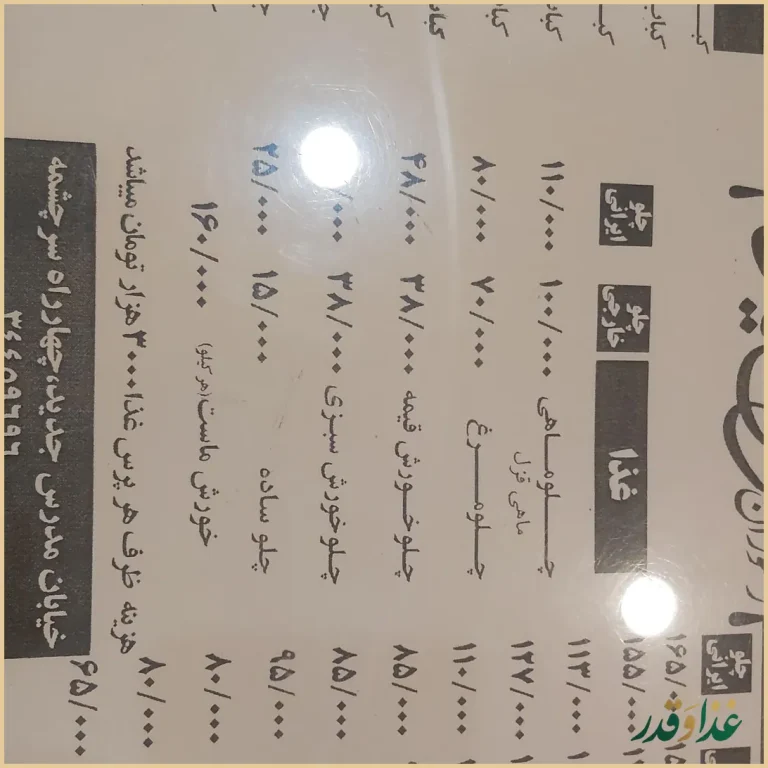 چلو ایرانی
۱۵۵/۰۰۰
۱۱۳/۰۰۰
۱۲۷/۰۰۰
۱۱۰/۰۰۰
۸۵/۰۰۰
۸۵/۰۰۰
۹۵/۰۰۰
۸۰/۰۰۰
۸۰/۰۰۰
۶۵/۰۰۰
غذا چلو خارجی چلو ایرانی
چلوماهی ۱۰۰/۰۰۰ ۱۱۰/۰۰۰
ماهی قزل
چلومرغ ۷۰/۰۰۰ ۸۰/۰۰۰
چلوخورش قیمه ۳۸/۰۰۰ ۴۸/۰۰۰
چلوخورش سبزی ۳۸/۰۰۰
چلو ساده ۱۵/۰۰۰ ۲۵/۰۰۰
خورش ماست (هر کیلو) ۱۶۰/۰۰۰
هزینه ظرف هر پرس غذا ۳۰۰۰ هزار تومان میباشد
خیابان مدرس جدید، چهارراه سرچشمه
غذا و قدر